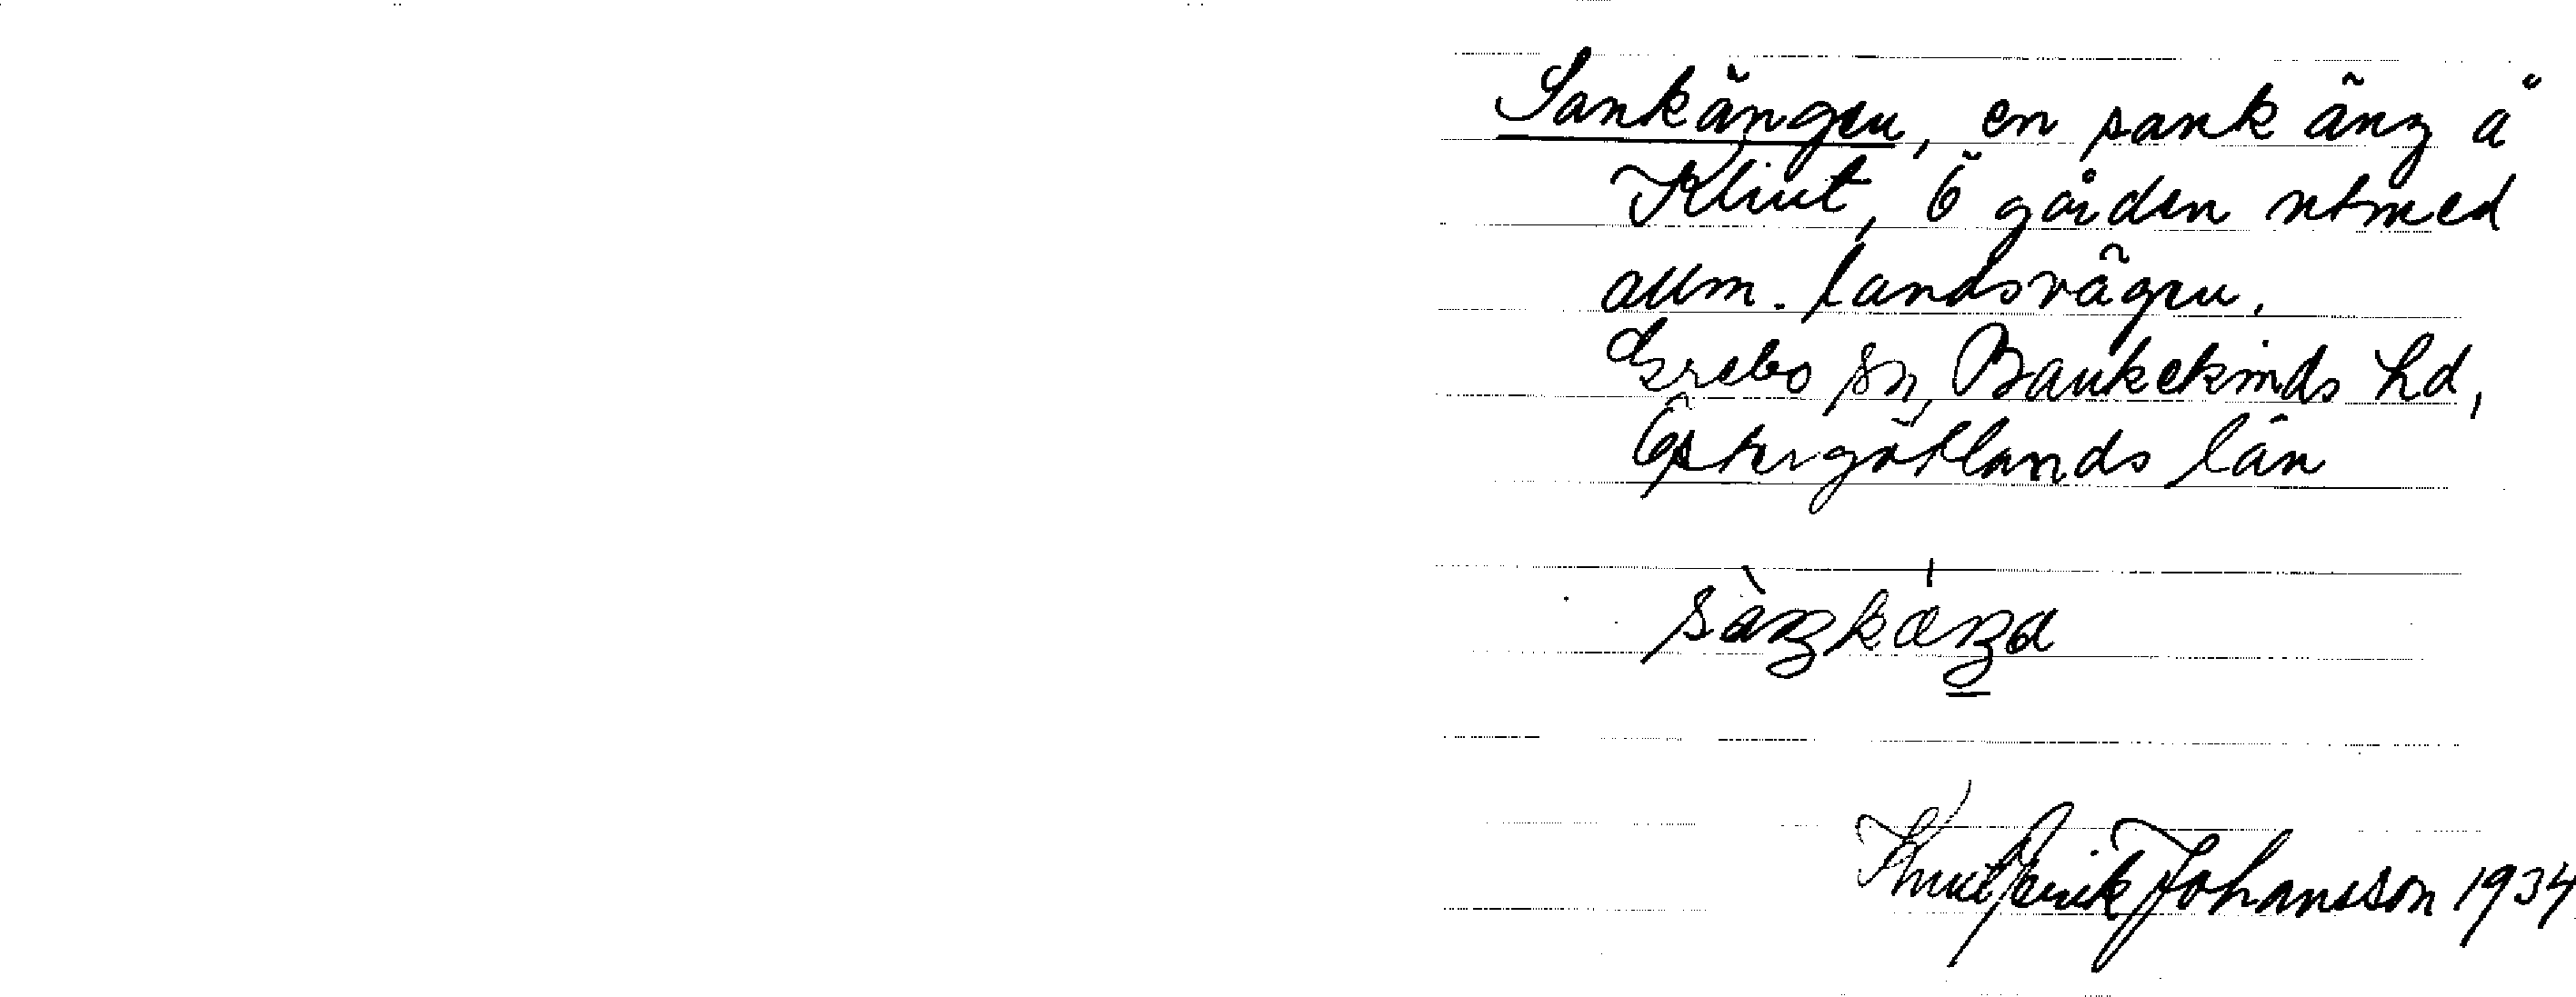 Sankängen, en sank äng å
Klint, Ö gården utmed
allm. landsvägen.
Grebo sn, Bankekinds hd,
Östergötlands län
Knut Erik Johansson 1934